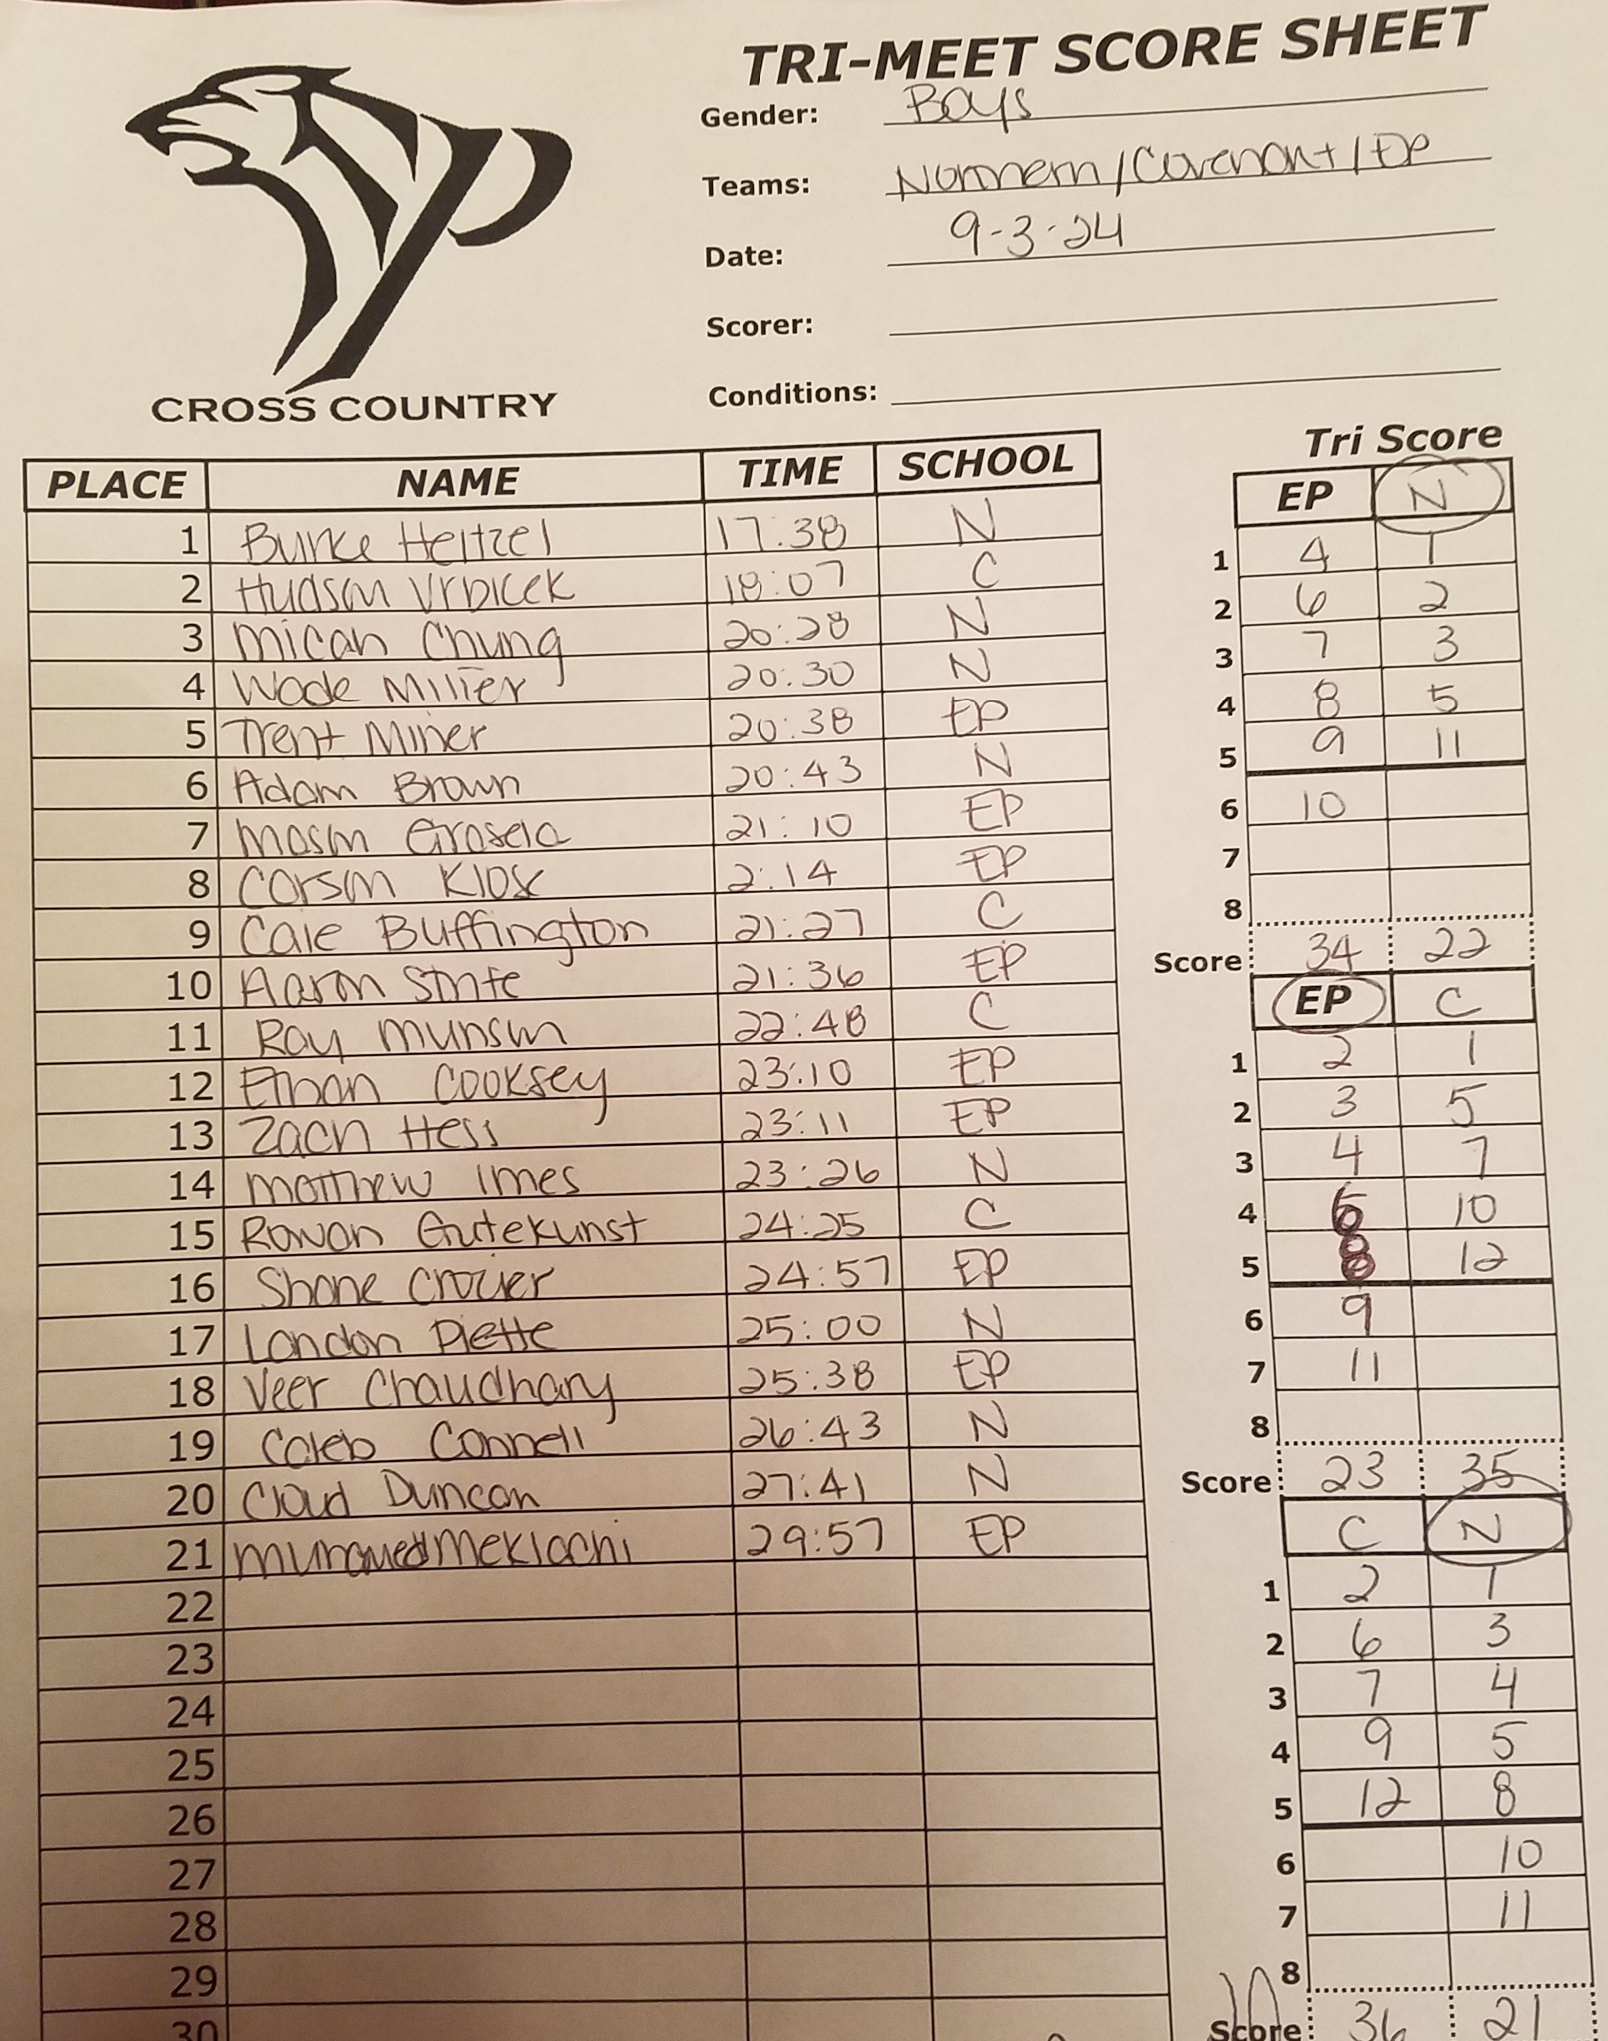 TRI-MEET SCORE SHEET
Gender: Boys
Teams: Northern/Covenant/EP
Date: 9-3-24
Scorer:
Conditions:
CROSS COUNTRY
PLACE NAME TIME SCHOOL
1 Burke Heitzel 17:38 N
2 Hudson Vrbicek 18:07 C
3 Micah Chung 20:28 N
4 Wade Miller 20:30 N
5 Trent Miner 20:38 EP
6 Adam Brown 20:43 N
7 Mason 21:10 EP
8 Carson 2:14 EP
9 Cale Buffington 21:27 C
10 Aaron 21:36 EP
11 Ray Munson 22:48 C
12 Ethan Cooksey 23:10 EP
13 Zach Hess 23:11 EP
14 Matthew Imes 23:26 N
15 Rowan Gutekunst 24:25 C
16 Shane 24:57 EP
17 London Piette 25:00 N
18 Veer Chaudhary 25:38 EP
19 Caleb Connell 26:43 N
20 Cloud Duncan 27:41 N
21 29:57 EP
22
23
24
25
26
27
28
29
30
Tri Score
EP N
1 4 1
2 6 2
3 7 3
4 8 5
5 9 11
6 10
7
8
Score 34 22
EP C
1 2 1
2 3 5
3 4 7
4 6 10
5 8 12
6 9
7 11
8
Score 23 35
C N
1 2 1
2 6 3
3 7 4
4 9 5
5 12 8
6 10
7 11
8
Score 36 21